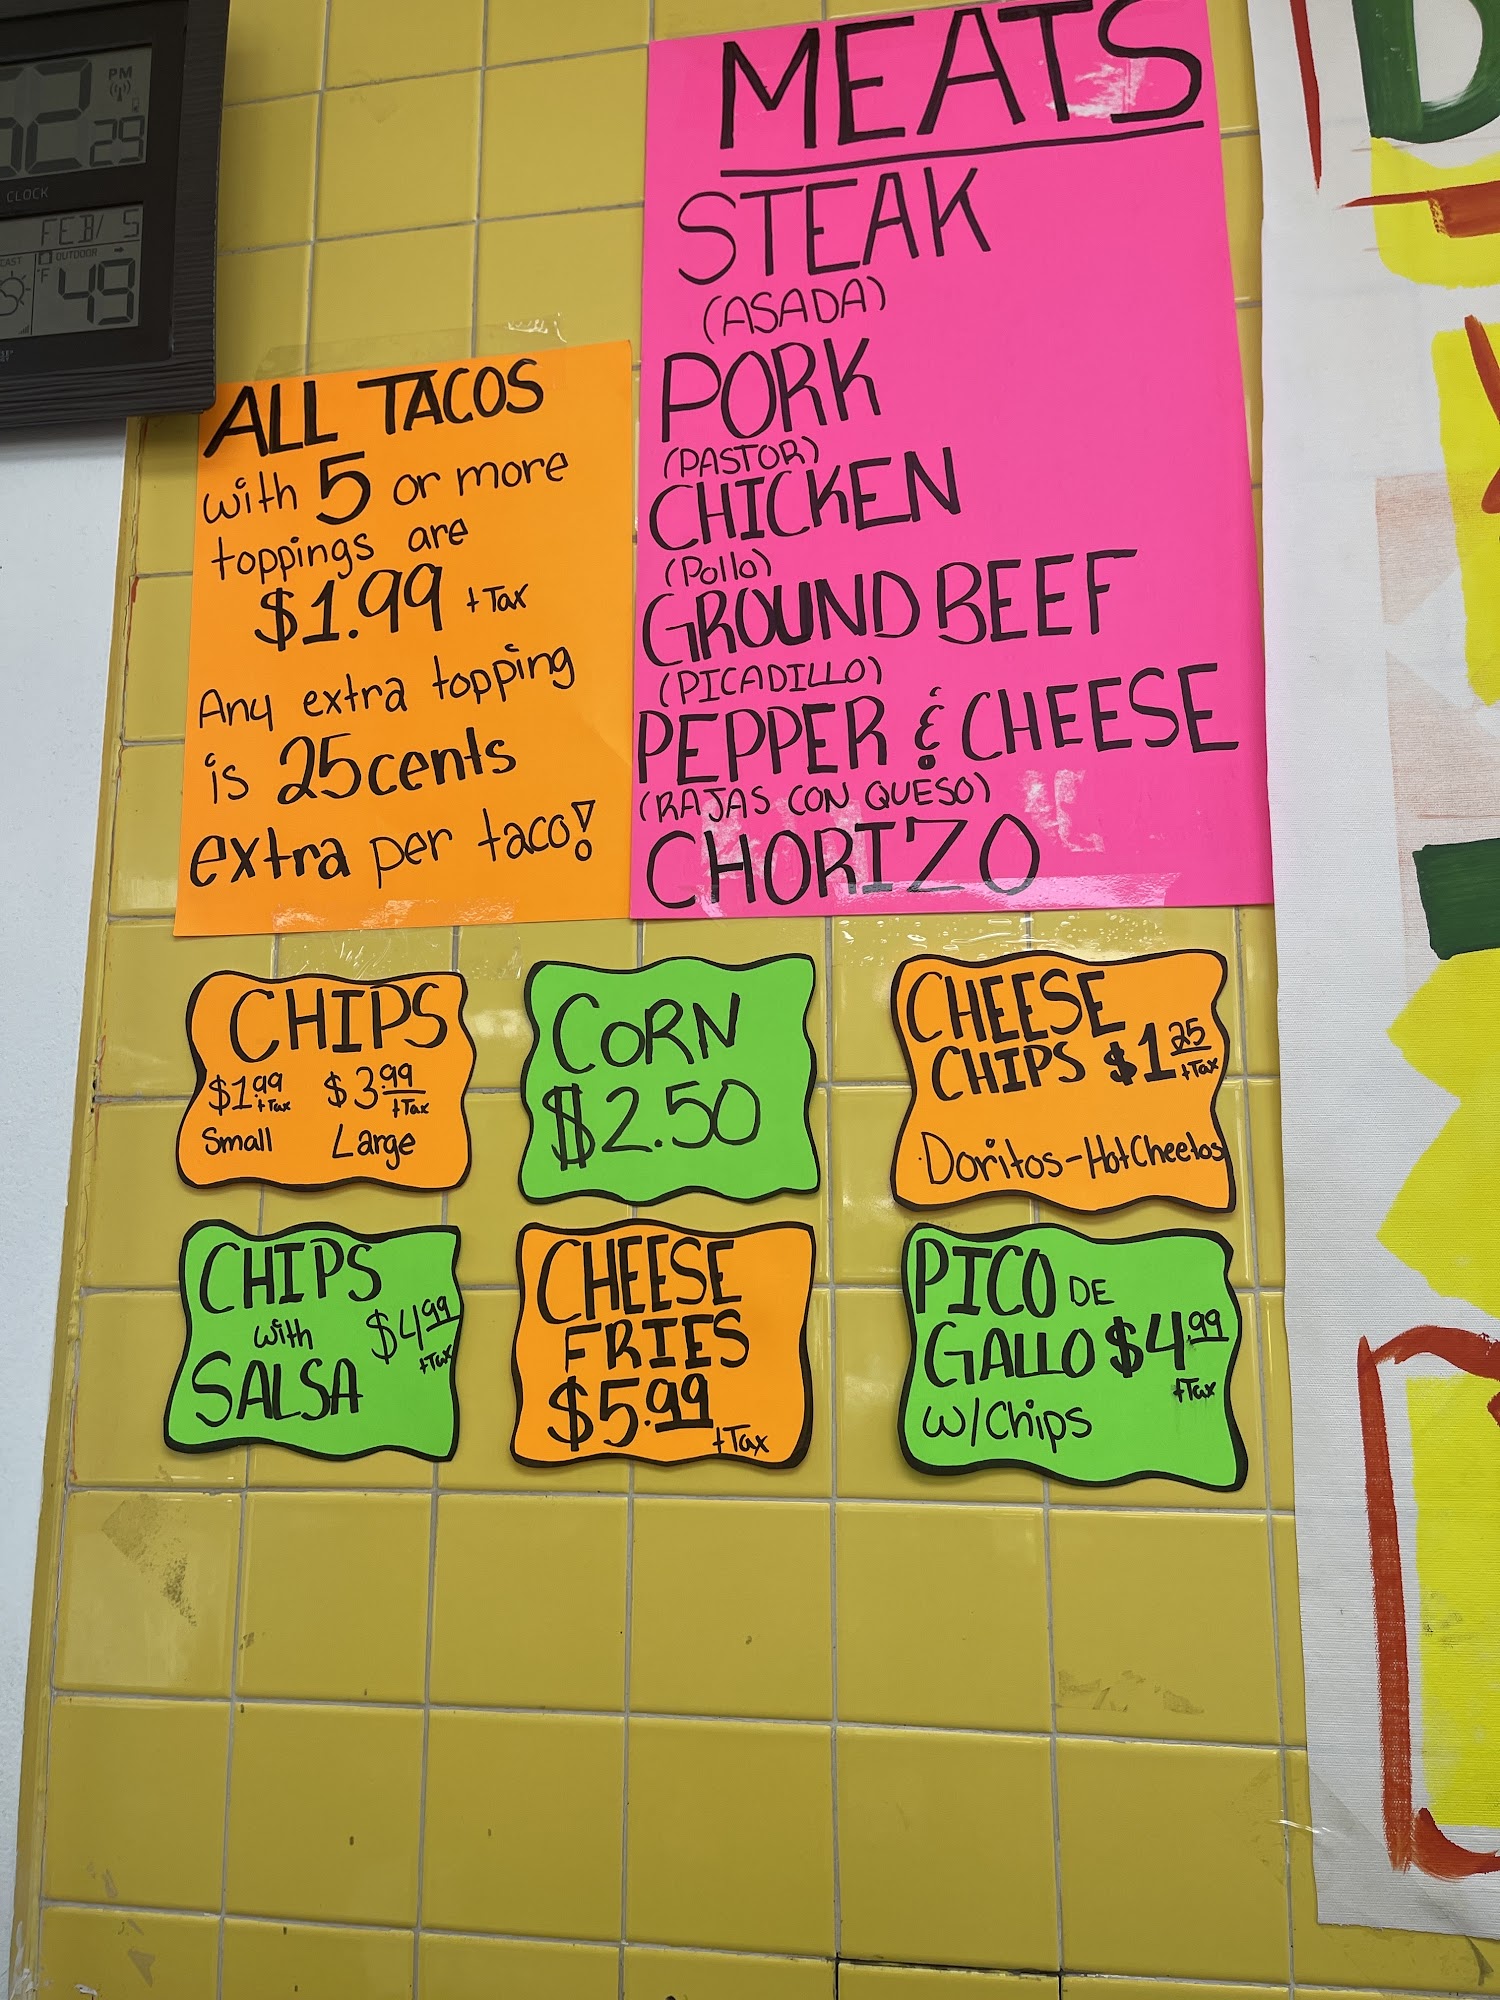 PM
29
CLOCK
FEB/ 5
OUTDOOR
°F 49
MEATS
STEAK
(ASADA)
PORK
(PASTOR)
CHICKEN
(Pollo)
GROUND BEEF
(PICADILLO)
PEPPER & CHEESE
(RAJAS CON QUESO)
CHORIZO
ALL TACOS
with 5 or more
toppings are
$1.99 + Tax
Any extra topping
is 25cents
extra per taco!
CHIPS
$1.99 +Tax $3.99 +Tax
Small Large
CORN
$2.50
CHEESE
CHIPS $1.25 +Tax
Doritos-HotCheetos
CHIPS
with $4.99
SALSA +Tax
CHEESE
FRIES
$5.99
+Tax
PICO DE
GALLO $4.99
+Tax
w/Chips